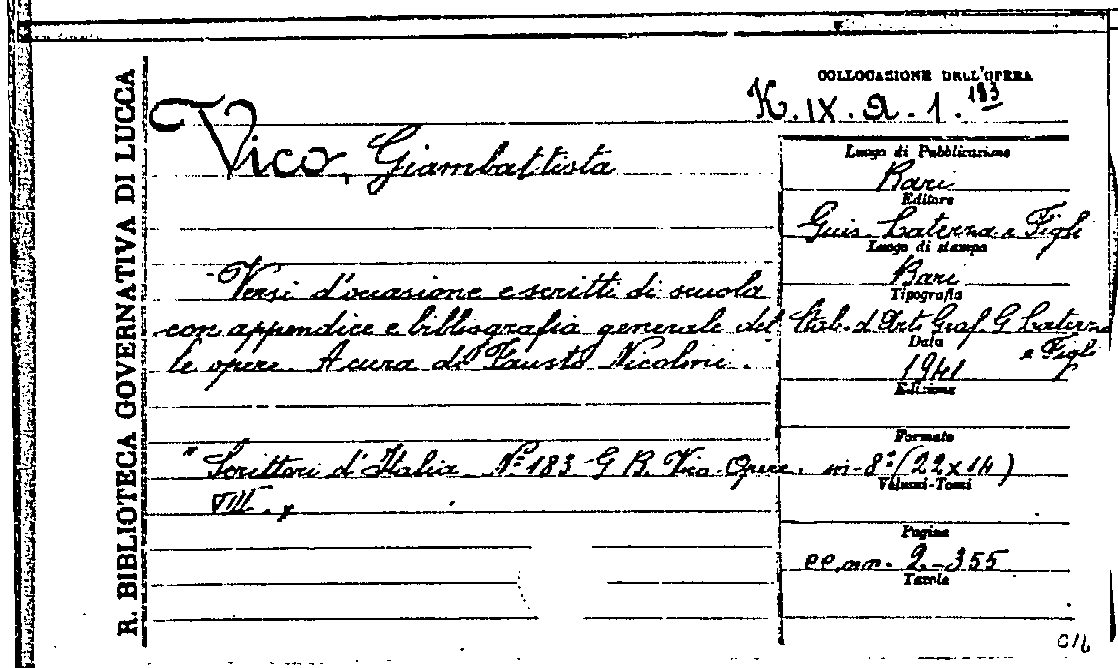 R. BIBLIOTECA GOVERNATIVA DI LUCCA
COLLOCAZIONE DELL'OPERA
K. IX. A. 1. 183
Vico, Giambattista
Versi d'occasione e scritti di scuola
con appendice e bibliografia generale del
le opere. A cura di Fausto Nicolini.
"Scrittori d'Italia. Nº 183 G B. Vico Opere.
VIII.
Luogo di Pubblicazione
Bari
Editore
Gius. Laterza e Figli
Luogo di stampa
Bari
Tipografia
Stab. d'Arti Graf. G Laterza
e Figli
Data
1941
Edizione
Formato
in-8º (22x14)
Volumi-Tomi
Pagine
pp. nn. 2-355
Tavole